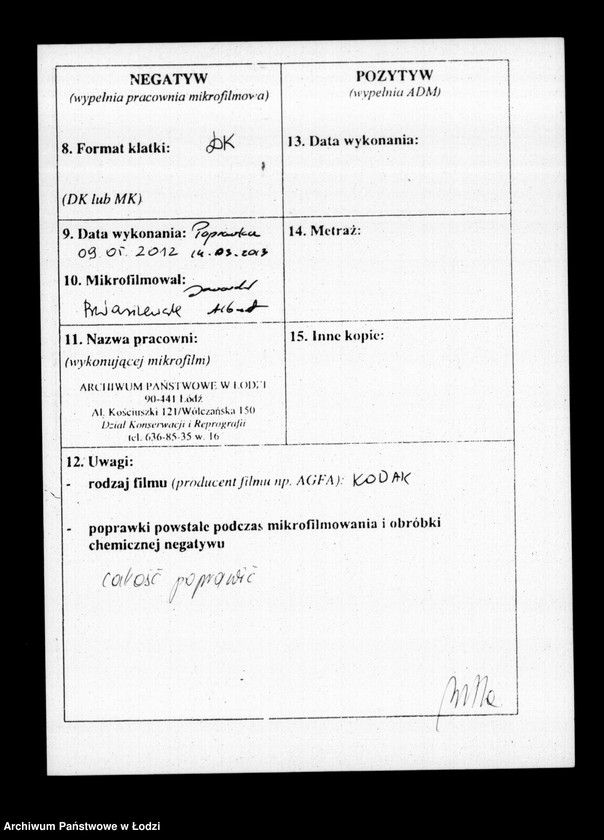 NEGATYW
(wypełnia pracownia mikrofilmowa)
8. Format klatki: DK
(DK lub MK)
9. Data wykonania: Poprawka
09.05.2012 14.03.2013
10. Mikrofilmował:
11. Nazwa pracowni:
(wykonującej mikrofilm)
ARCHIWUM PAŃSTWOWE W ŁODZI
90-441 Łódź
Al. Kościuszki 121/Wólczańska 150
Dział Konserwacji i Reprografii
tel. 636-85-35 w. 16
POZYTYW
(wypełnia ADM)
13. Data wykonania:
14. Metraż:
15. Inne kopie:
12. Uwagi:
- rodzaj filmu (producent filmu np. AGFA): KODAK
- poprawki powstałe podczas mikrofilmowania i obróbki
chemicznej negatywu
całość poprawić
Archiwum Państwowe w Łodzi